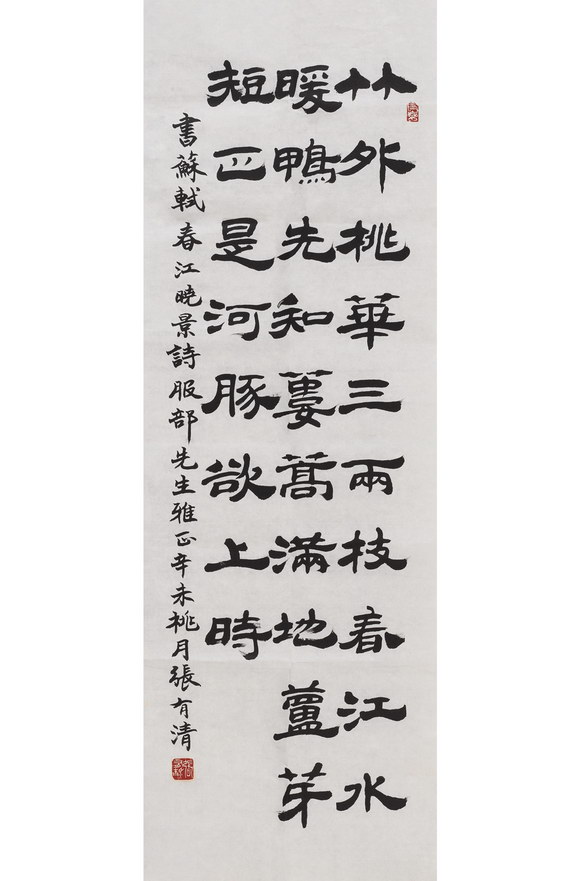 竹外桃華三兩枝春江水
暖鴨先知蔞蒿滿地蘆芽
短正是河豚欲上時
書蘇軾春江曉景詩服部先生雅正辛未桃月張有清